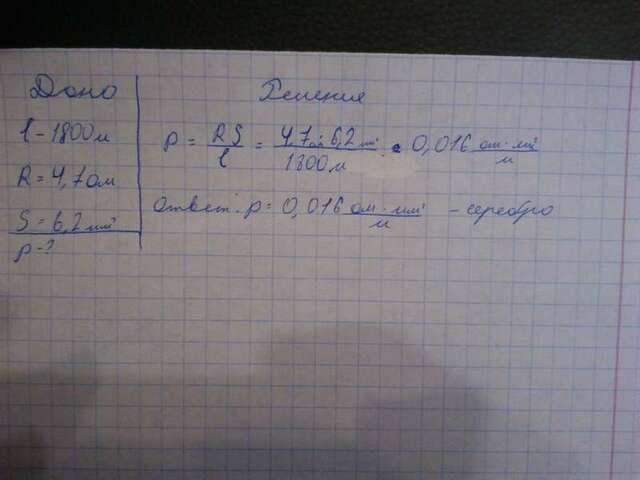 Дано
l - 1800м
R = 4,7 Ом
S = 6,2 мм²
p - ?
Решения
p = RS/l = 4,7 Ом · 6,2 мм²/1800 м = 0,016 ом · мм²/м
Ответ: p = 0,016 ом · мм²/м - серебро